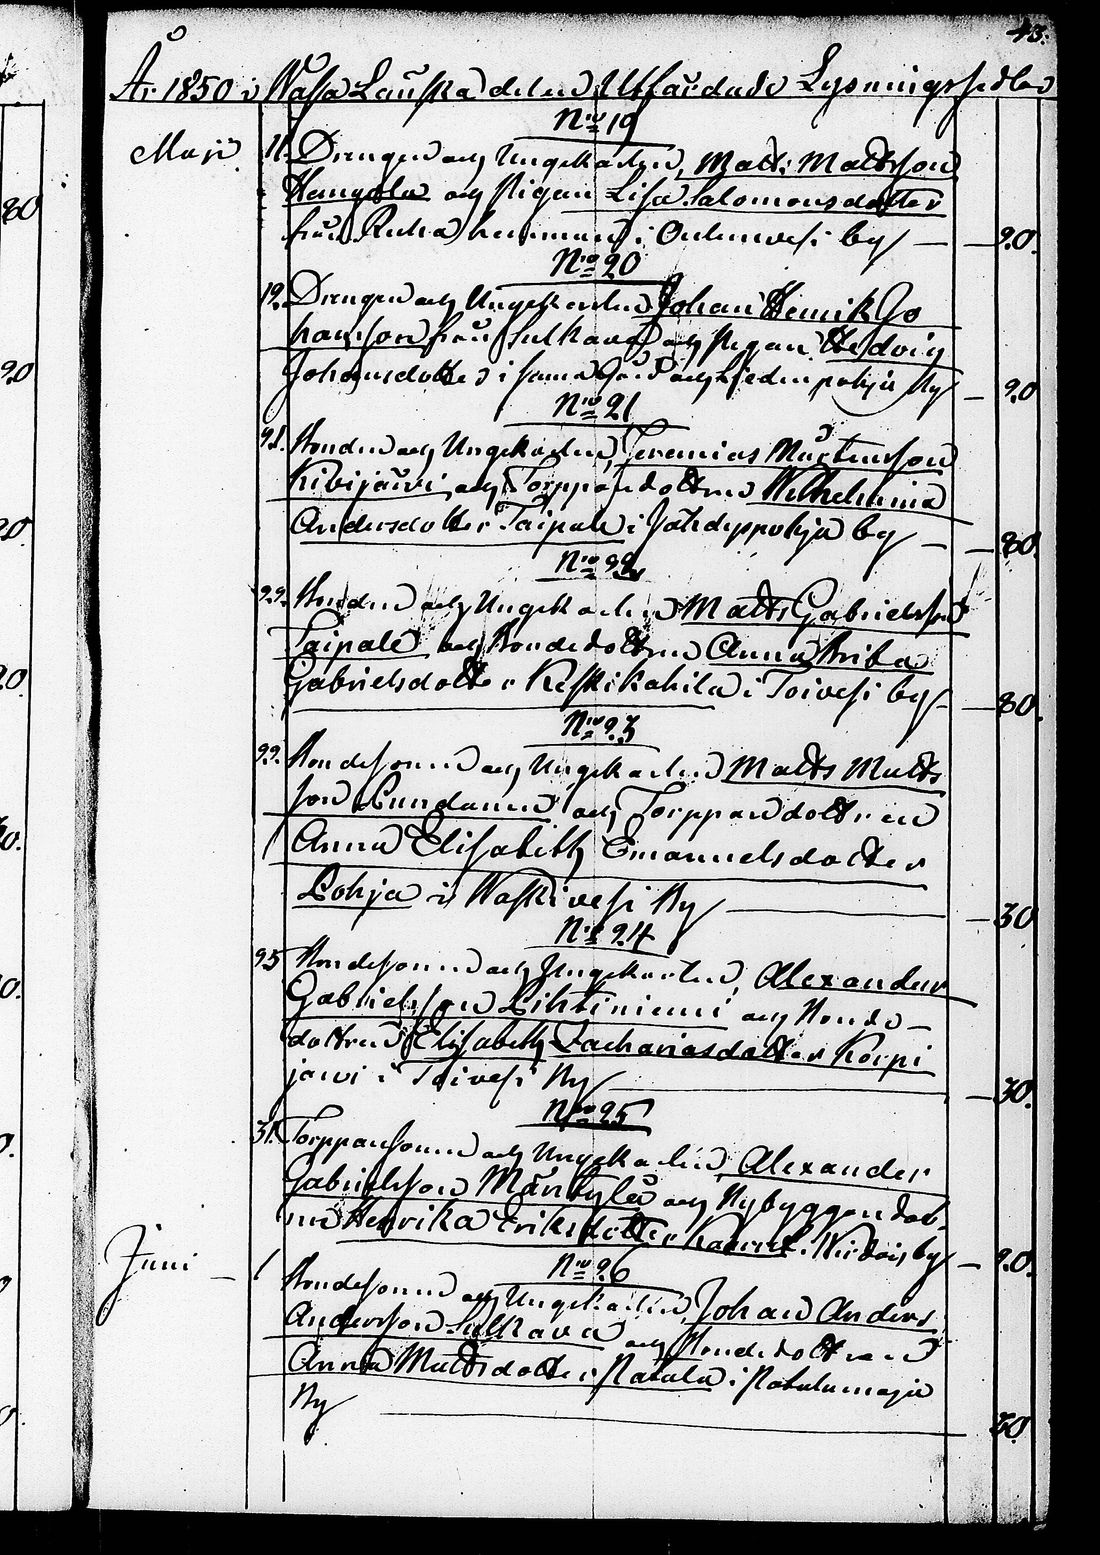 43.
År 1850 i Wasa Länska delen Utfärdade Lysningssedlar
Maji
No 19
11. Drengen och Ungekarlen, Matts Mattsson
Hangola och Pigan Lisa Salomonsdotter
från Ruha hemman i Ouluvesi by — 20.
No 20
12. Drengen och Ungekarlen Johan Henrik Jo
hansson från Sulkava och Pigan Hedvig
Johansdotter i samma Gård och Liedenpohja By — 20
No 21
21. Bonden och Ungekarlen, Jeremias Mårtensson
Kivijärvi och Torppardottren Wilhelmina
Andersdotter Taipale i Jähdyspohja by — 80.
No 22
22. Bonden och Ungekarlen Matts Gabrielsson
Taipale och Bondedottren Anna Brita
Gabrielsdotter Keskikahila i Toivesi by — 80.
No 23
22. Bondesonen och Ungekarlen Matts Matts
son Lundanen och Torppardottren
Anna Elisabeth Emanuelsdotter
Lohja i Waskivesi By — 30
No 24
25 Bondesonen och Ungekarlen, Alexander
Gabrielsson Lihtiniemi och Bonde-
dottren Elisabeth Zachariasdotter Korpi
jarvi i Toivesi By — 30.
No 25
31. Torpparsonen och Ungekarlen Alexander
Gabrielsson Mäntylä och Nybyggardot-
Henrika Eriksdotter i Wirdois by — 20.
Juni — 1
No 26
Bondesonen och Ungekarlen, Johan Anders
Andersson Sulkava och Bondedottren
Anna Mattsdotter Ratala i Ratalamaja
By 30